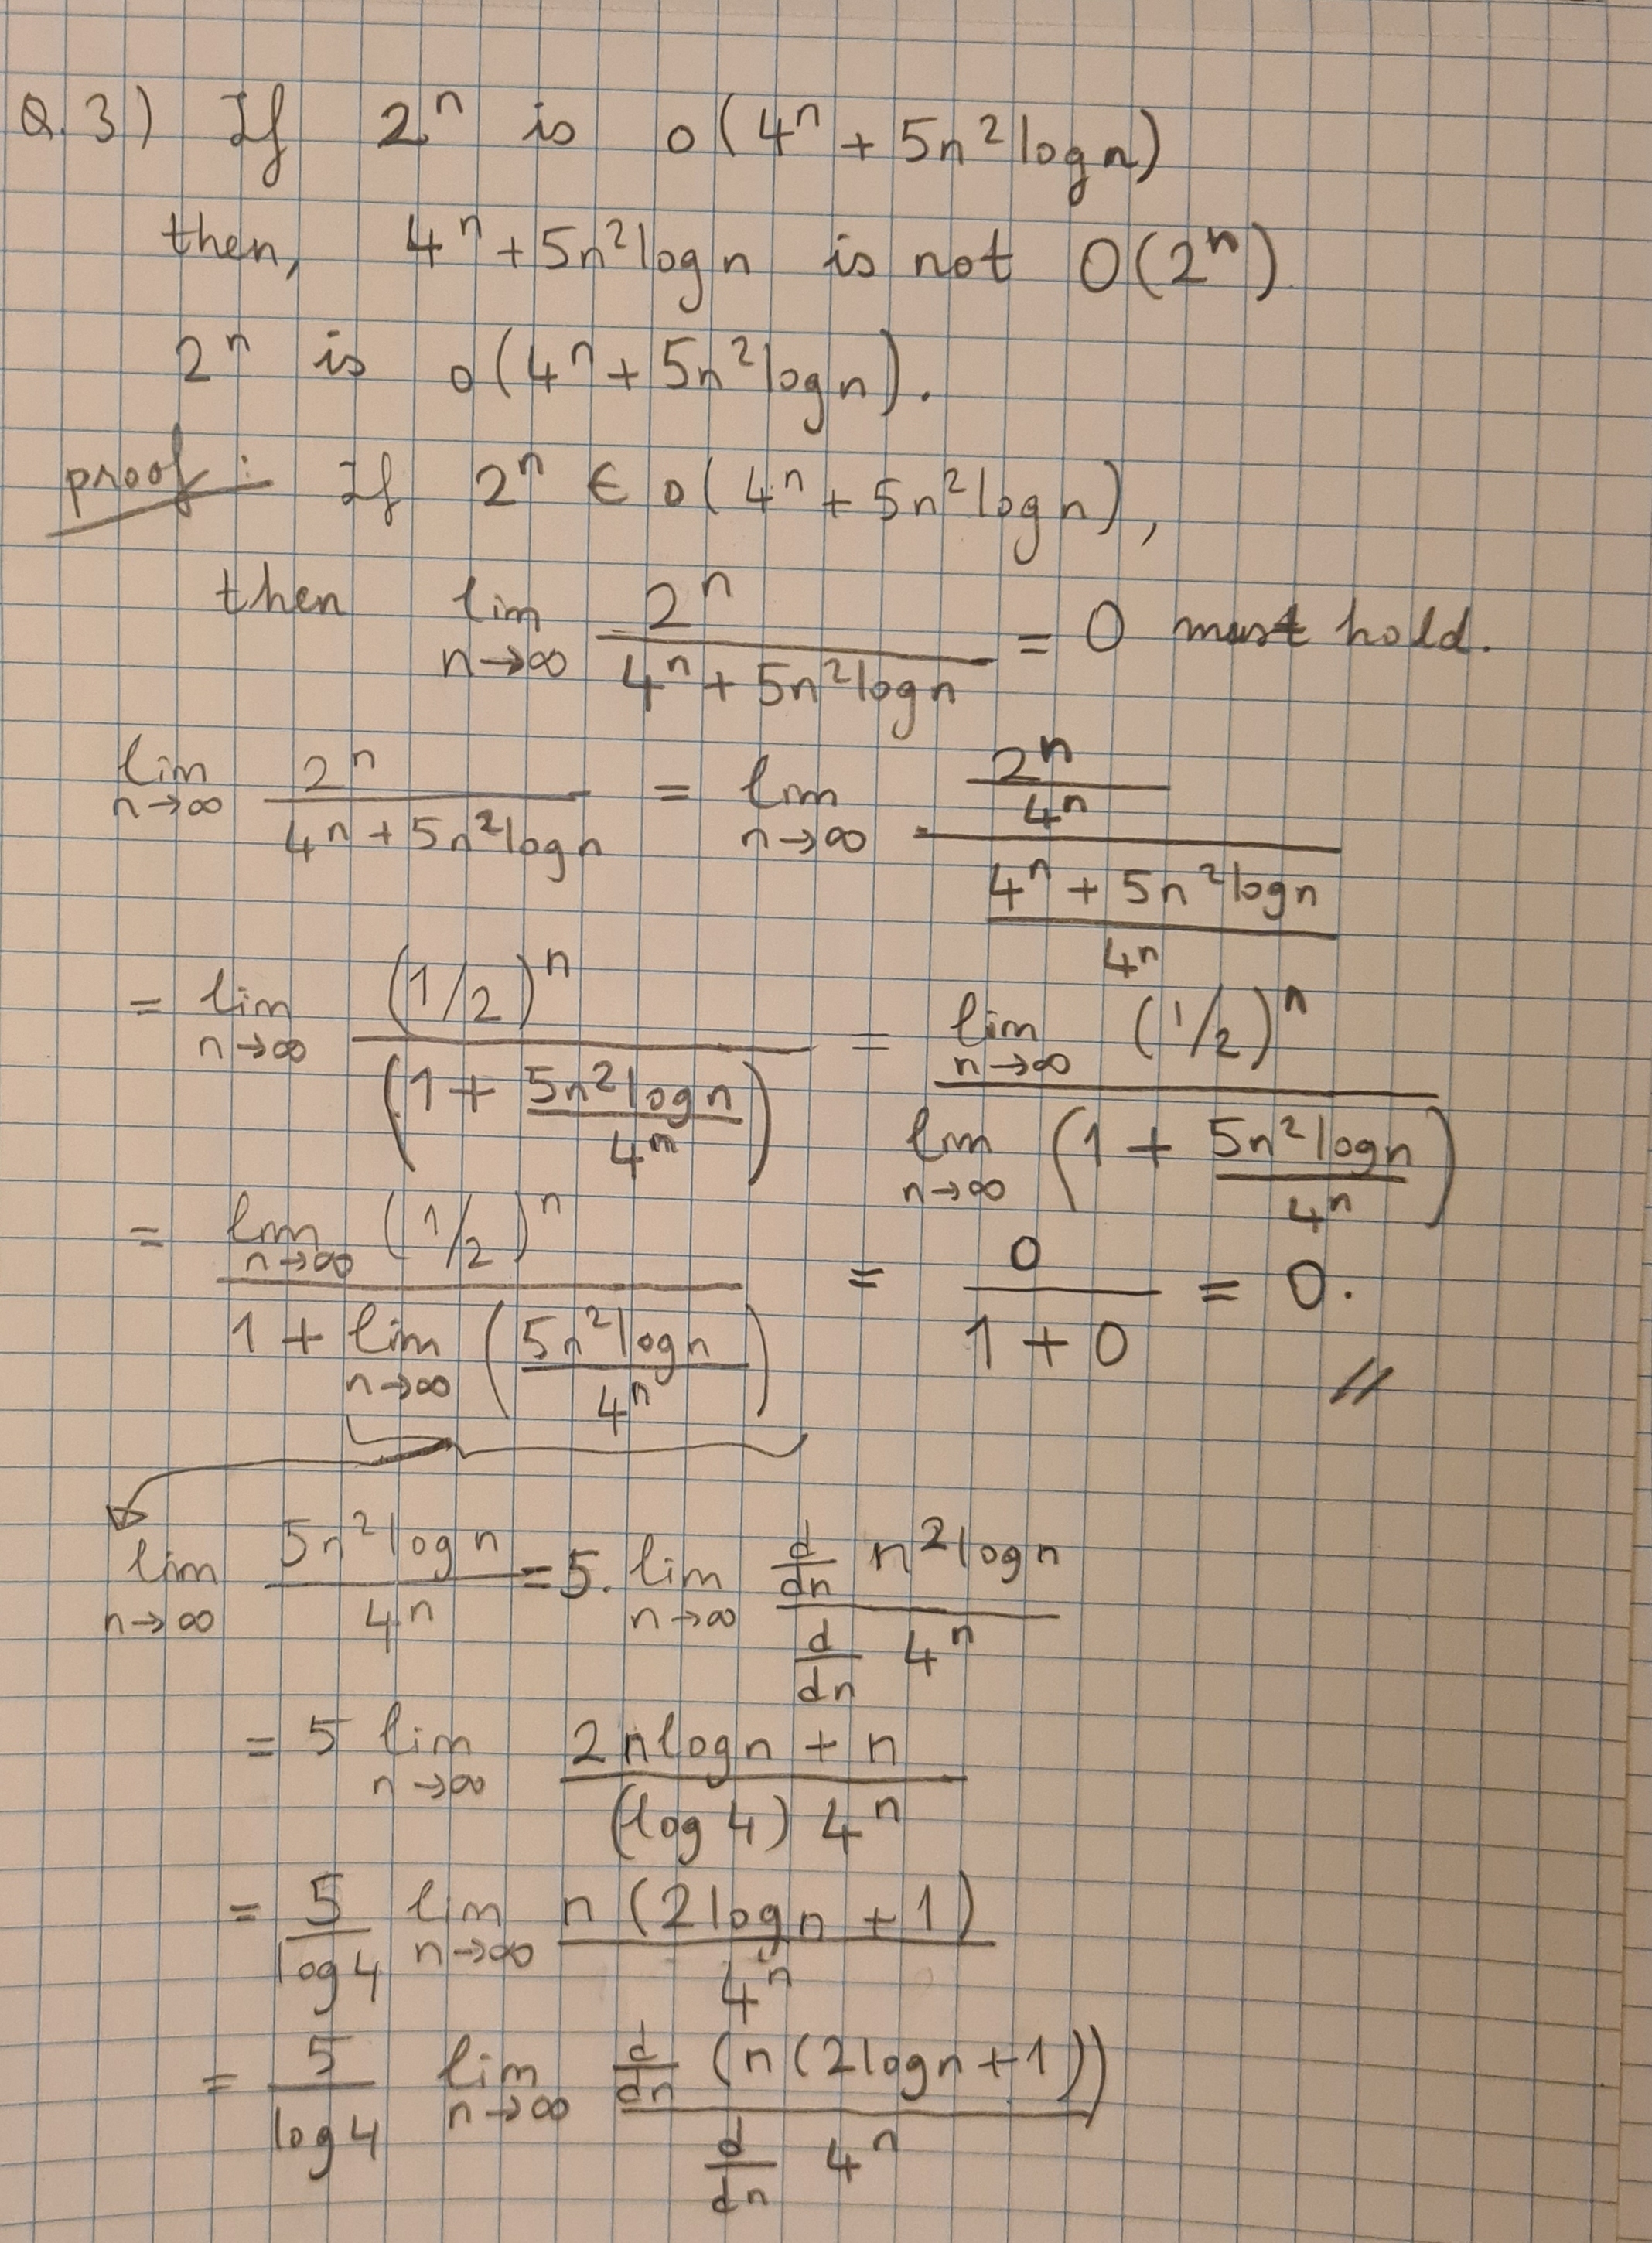 Q.3) If 2^n is o(4^n + 5n^2 log n)
then, 4^n + 5n^2 log n is not O(2^n)
2^n is o(4^n + 5n^2 log n).
proof: If 2^n ∈ o(4^n + 5n^2 log n),
then lim n→∞ 2^n / (4^n + 5n^2 log n) = 0 must hold.
lim n→∞ 2^n / (4^n + 5n^2 log n) = lim n→∞ (2^n / 4^n) / ((4^n + 5n^2 log n) / 4^n)
= lim n→∞ (1/2)^n / (1 + 5n^2 log n / 4^n) = lim n→∞ (1/2)^n / lim n→∞ (1 + 5n^2 log n / 4^n)
= lim n→∞ (1/2)^n / (1 + lim n→∞ (5n^2 log n / 4^n)) = 0 / (1 + 0) = 0. //
lim n→∞ 5n^2 log n / 4^n = 5. lim n→∞ (d/dn n^2 log n) / (d/dn 4^n)
= 5 lim n→∞ (2n log n + n) / ((log 4) 4^n)
= 5 / log 4 lim n→∞ n (2 log n + 1) / 4^n
= 5 / log 4 lim n→∞ (d/dn (n (2 log n + 1))) / (d/dn 4^n)